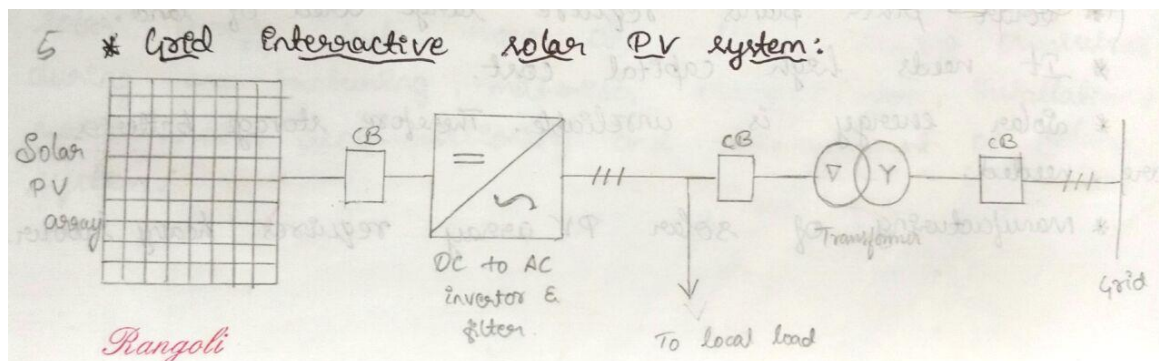 5 * Grid Interractive solar PV system:
Solar
PV
array
CB
DC to AC
invertor &
filter
To local load
CB
Δ Y
Transformer
CB
Grid
Rangoli